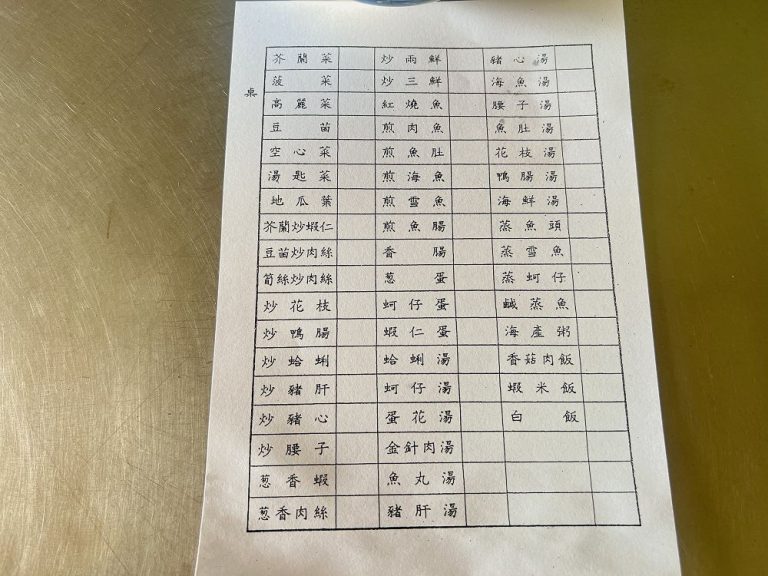 桌
芥蘭菜
菠菜
高麗菜
豆苗
空心菜
湯匙菜
地瓜葉
芥蘭炒蝦仁
豆苗炒肉絲
筍絲炒肉絲
炒花枝
炒鴨腸
炒蛤蜊
炒豬肝
炒豬心
炒腰子
葱香蝦
葱香肉絲
炒兩鮮
炒三鮮
紅燒魚
煎肉魚
煎魚肚
煎海魚
煎雪魚
煎魚腸
香腸
葱蛋
蚵仔蛋
蝦仁蛋
蛤蜊湯
蚵仔湯
蛋花湯
金針肉湯
魚丸湯
豬肝湯
豬心湯
海魚湯
腰子湯
魚肚湯
花枝湯
鴨腸湯
海鮮湯
蒸魚頭
蒸雪魚
蒸蚵仔
鹹蒸魚
海產粥
香菇肉飯
蝦米飯
白飯